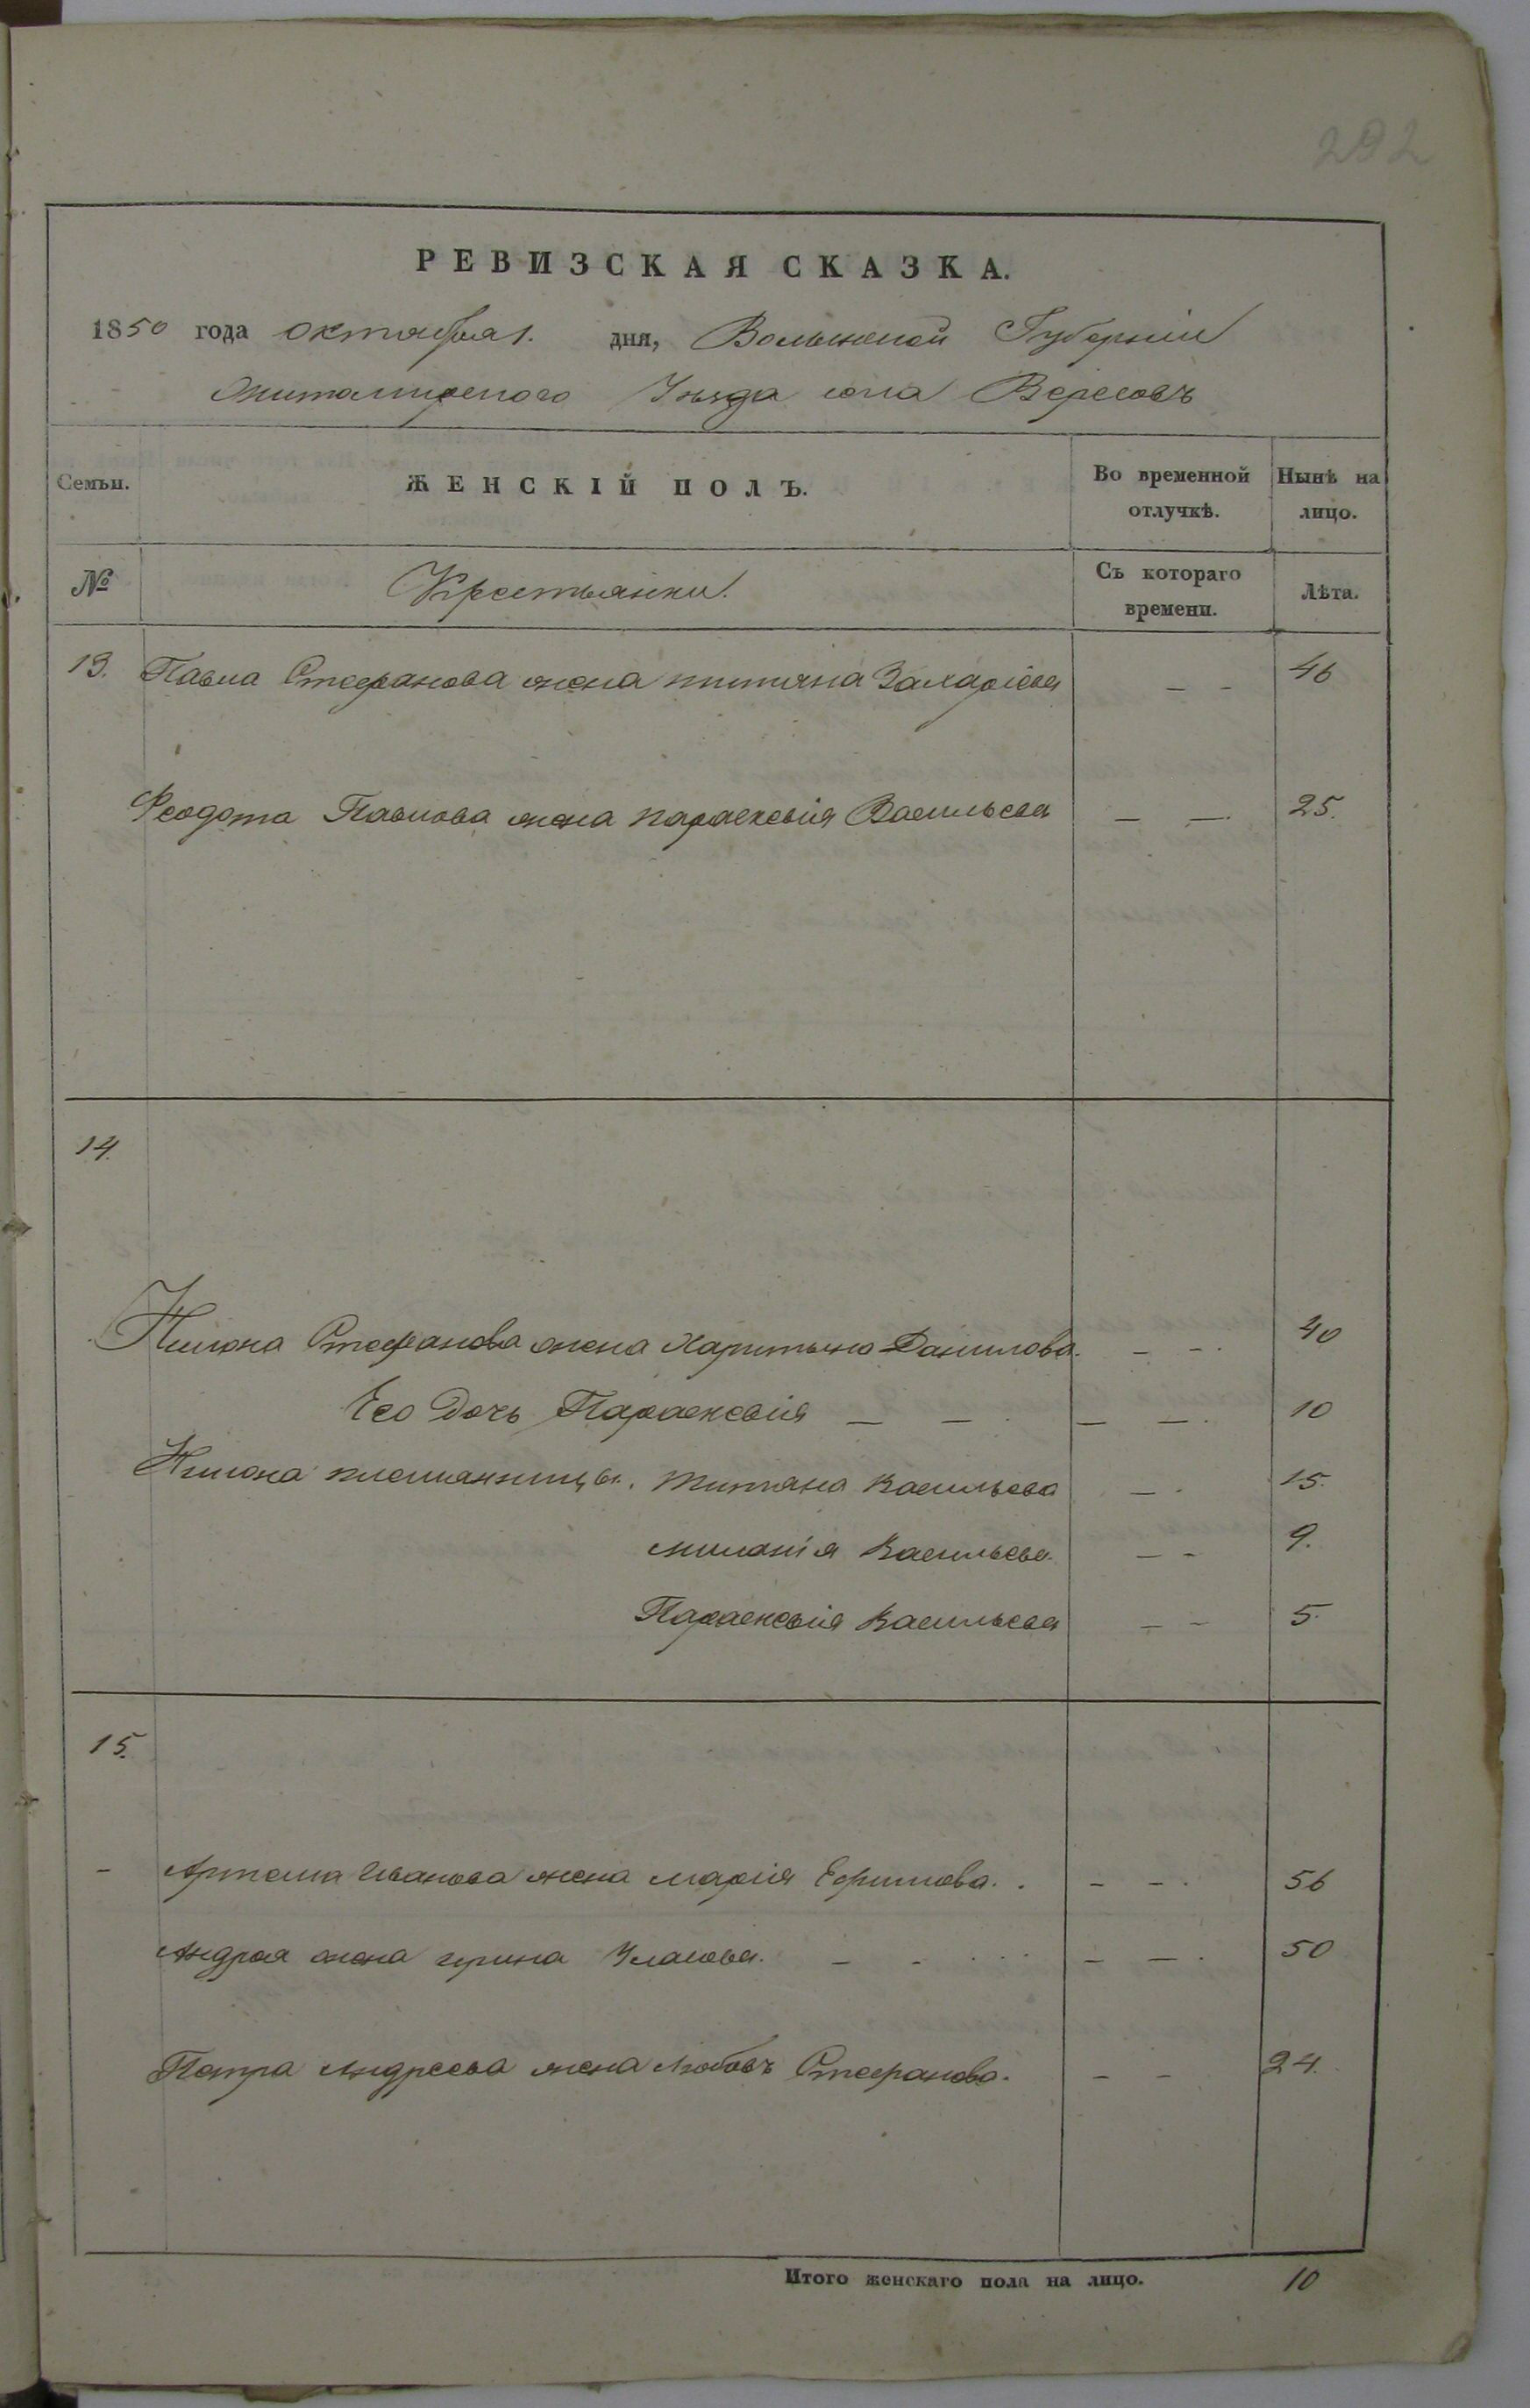 292
РЕВИЗСКАЯ СКАЗКА.
1850 года октября 1. дня, Волынской Губернии
Житомирского Уезда села Вересовъ
Семьи. ЖЕНСКІЙ ПОЛЪ. Во временной отлучкѣ. Нынѣ на лицо.
№ Крестьянки. Съ котораго времени. Лѣта.
13. Павла Стефанова жена Захаріева — — 46
Феодота Павлова жена параскевія Васильева — — 25.
14.
Стефанова жена Харитына Данилова. — — 40
Его Дочь Параскевія — — — — 10
племянницы. татіана Васильева — 15.
миланія Васильева — — 9.
Параскевія Васильева — — 5.
15.
— Артема Иванова жена марія Ефимова. — — 56
Андрея жена ирина Власова. — — — — 50
Петра Андреева жена Любовъ Стефанова. — — 24.
Итого женскаго пола на лицо. 10